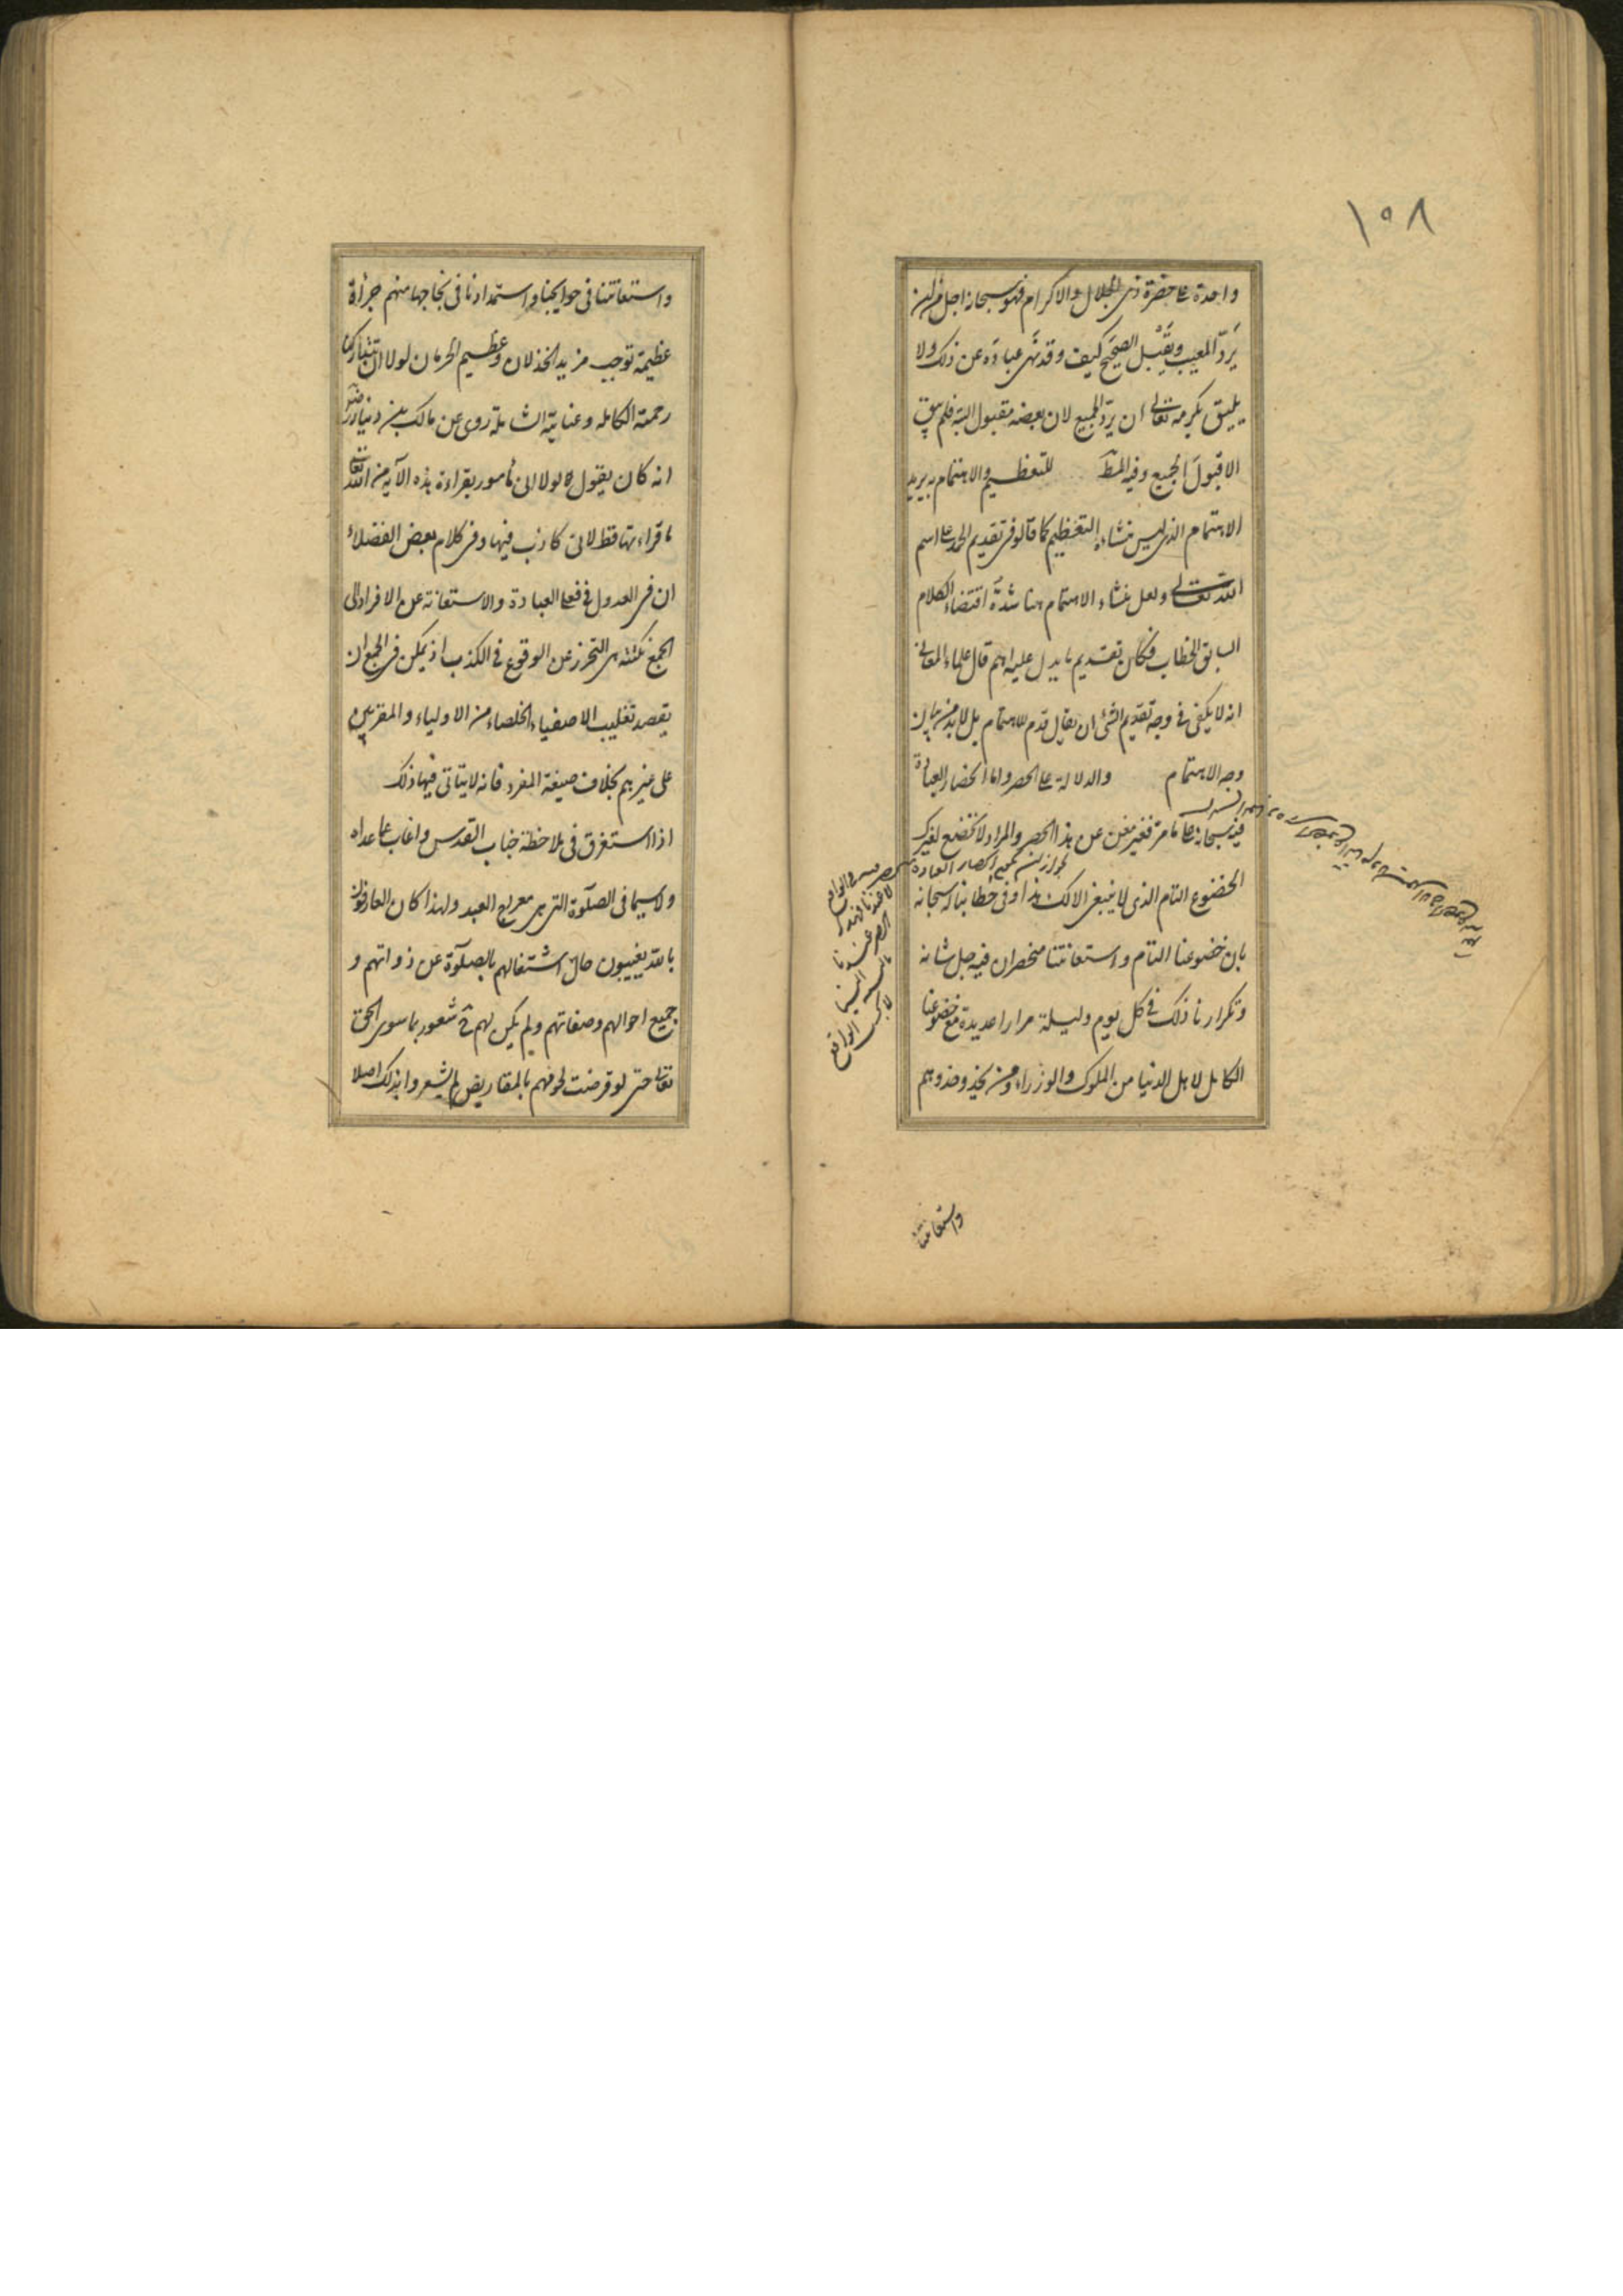 ١٥٨
واحدة على حضرة ذى الجلال والاكرام فهو سبحانه اجل من ان
يَردّ المعيب ويَقْبل الصحيح كيف وقد نهى عباده عن ذلك ولا
يليق بكرمه تعالى ان يردّ الجميع لان بعضه مقبول البتة فلم يبق
الا قبولَ الجميع وفيه المط للتعظيم والاهتمام به يريد
الاهتمام الذى ليس منشاءه التعظيم كما قالوا فى تقديم الحمد على اسم
الله تعالى ولعل منشاء الاهتمام هنا شدّة اقتضاء الكلام
السابق الخطاب فكان تقديم ما يدل عليه اهم قال علماء المعانى
انه لا يكفى فى وجه تقديم الشئ ان يقال قدم للاهتمام بل لابد من بيان
وجه الاهتمام والدلالة على الحصر واما انحصار العبادة
فيه سبحانه على ما مر فغير مغن عن هذا الحصر والمراد لا نخضع لغيرك
الخضوع التام الذى لا ينبغى الا لك هذا وفى خطابنا له سبحانه
بان خضوعنا التام واستعانتنا منحصران فيه جل شانه
وتكرارنا ذلك فى كل يوم وليلة مرارا عديدة مع خضوعنا
الكامل لاهل الدنيا من الملوك والوزراء ومن يحذو حذوهم
واستعانتنا
واستعانتنا فى حوايجنا واستمدادنا فى نجاحها منهم جرأة
عظيمة توجب مزيد الخذلان وعظيم الحرمان لولا ان تتداركنا
رحمته الكاملة وعنايته الشاملة روى عن مالك بن دينار رضى
انه كان يقول لولا انى مأمور بقراءة هذه الآية من الله تعالى
ما قراءتها قط لانى كاذب فيها وفى كلام بعض الفضلاء
ان فى العدول فى فعلى العبادة والاستعانة عن الافراد الى
الجمع نكتة هى التحرز عن الوقوع فى الكذب اذ يمكن فى الجمع ان
يقصد تغليب الاصفياء الخلصاء من الاولياء والمقربين
على غيرهم بخلاف صيغة المفرد فانه لا يتاتى فيها ذلك
اذا استغرق فى ملاحظة جناب القدس وغاب عما عداه
ولا سيما فى الصلوة التى هى معراج العبد ولهذا كان العارفون
بالله يغيبون حال اشتغالهم بالصلوة عن ذواتهم و
جميع احوالهم وصفاتهم ولم يكن لهم شعور بما سوى الحق
تعالى حتى لو قرضت لحومهم بالمقاريض لم يشعروا بذلك اصلا